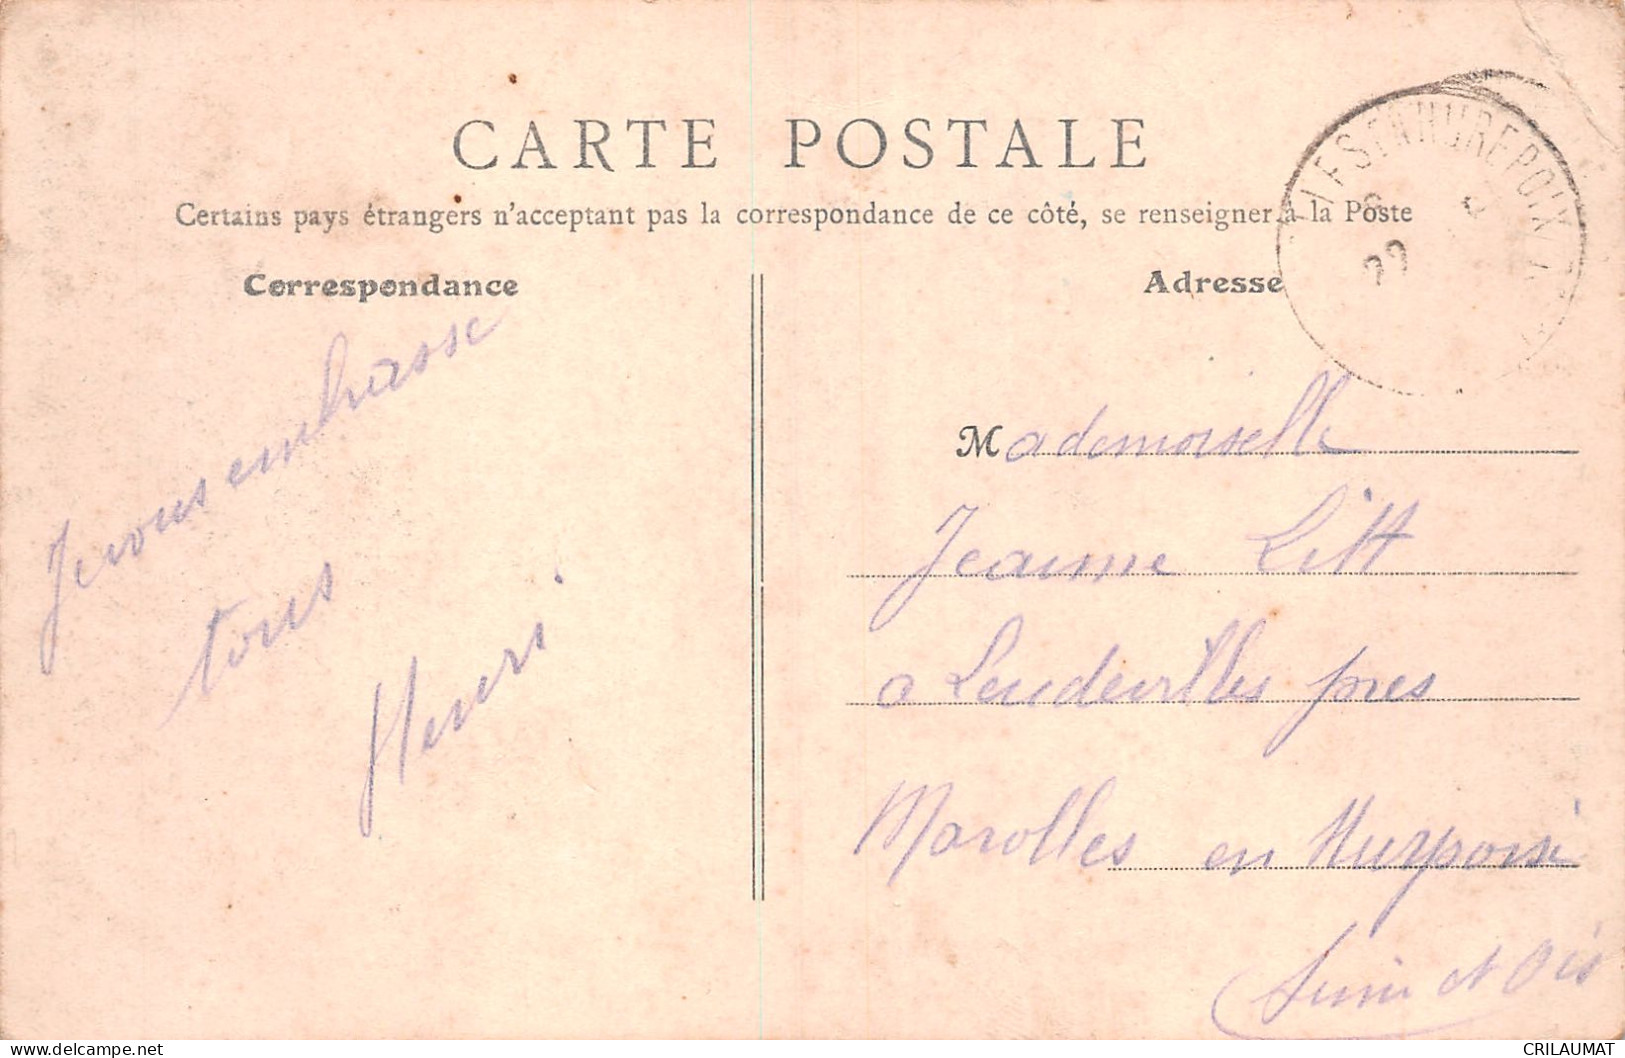 CARTE POSTALE
Certains pays étrangers n'acceptant pas la correspondance de ce côté, se renseigner à la Poste
Correspondance
Adresse
Je vous embrasse
tous
Henri
Mademoiselle
Jeanne Litt
a Leudevilles pres
Marolles en Hurpoix
Seine et Ois
ENHUREPOIX
CRILAUMAT